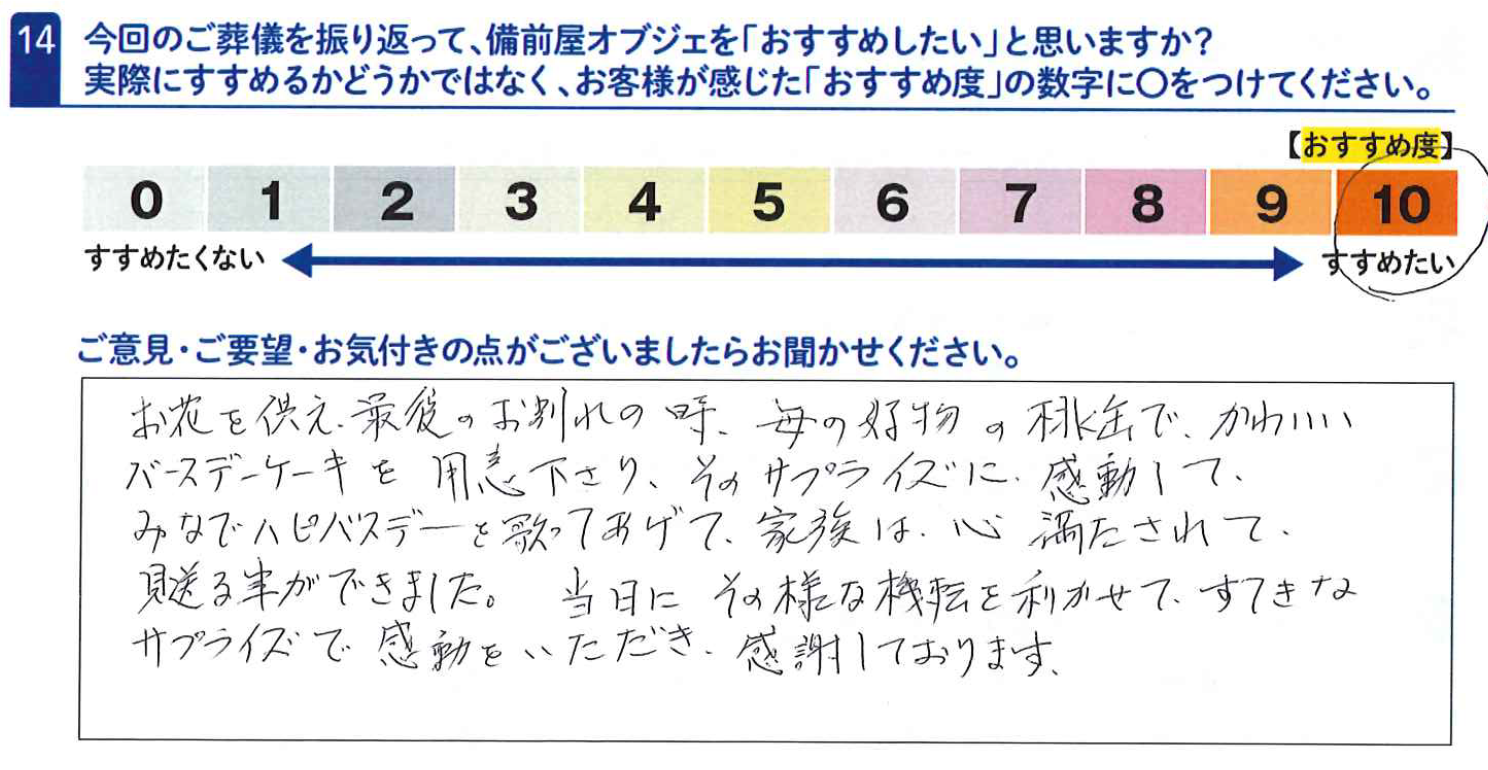 14 今回のご葬儀を振り返って、備前屋オブジェを「おすすめしたい」と思いますか?
実際にすすめるかどうかではなく、お客様が感じた「おすすめ度」の数字に〇をつけてください。
【おすすめ度】
0 1 2 3 4 5 6 7 8 9 10
すすめたくない すすめたい
ご意見・ご要望・お気付きの点がございましたらお聞かせください。
お花を供え、最後のお別れの時、母の好物の桃缶で、かわいい
バースデーケーキを用意下さり、そのサプライズに、感動して、
みなでハピバスデーを歌ってあげて、家族は、心満たされて、
見送る事ができました。 当日にその様な機転を利かせて、すてきな
サプライズで感動をいただき、感謝しております。